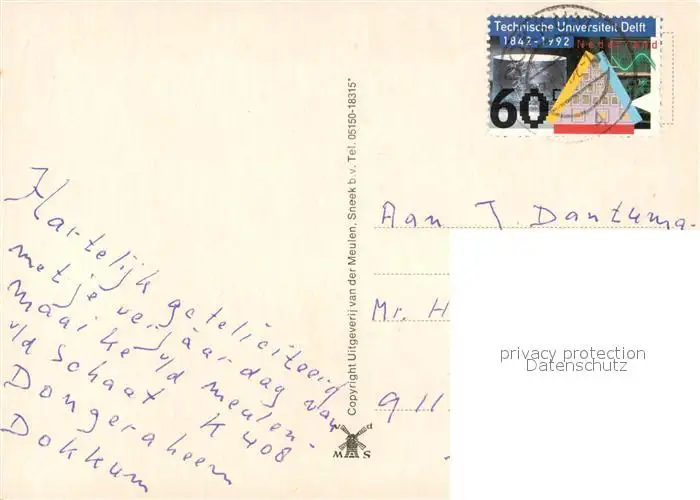 Technische Universiteit Delft
1842-1992
Nederland
60
Copyright Uitgeverij van der Meulen, Sneek b.v. Tel. 05150-18315*
MAS
Aan J. Dantuma.
Mr. H
911
privacy protection
Datenschutz
Hartelijk gefeliciteerd
met je verjaardag van
maaike v/d meulen-
v/d Schaat K 408
Dongeraheem
Dokkum